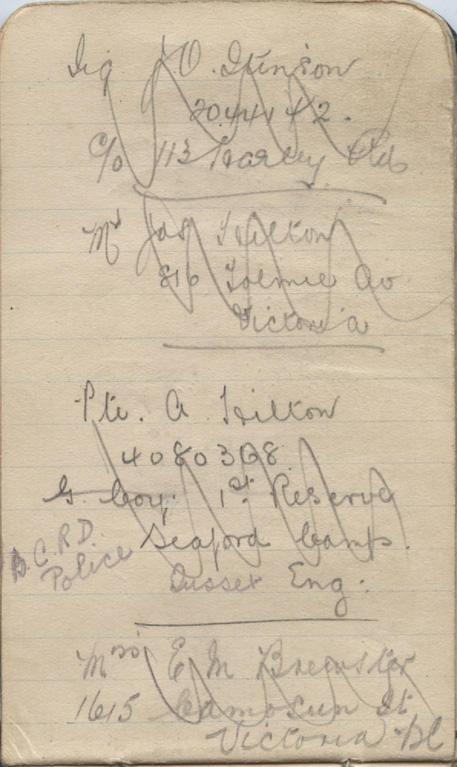 Sig J O. Stinson
2044142.
C/o 113 Harley Rd
Mr Jas Hilton
816 Tolmie Av
Victoria
Pte. A Hilton
4080368
G. Coy. 1st Reserve
B.C.R.D. Police
Seaford Camp.
Sussex Eng.
Mrs E M Brewster
1615 Camosun St
Victoria BC